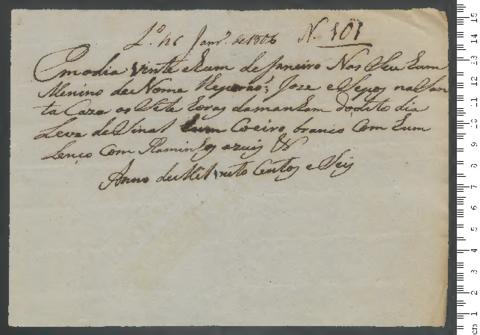 Janr.º de 1806 N. 101
Em o dia vinte e hum de Janeiro Nas Seu hum
Menino de Nome José e na San
ta Caza as Sete oras da manham do dito dia
Leva de Sinal hum Coeiro branco Com hum
Lenço Com Raminhos azuis
Anno de Mil e oito Centos e Seis